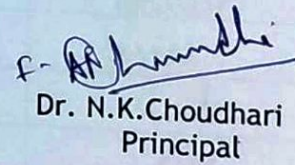 Dr. N.K.Choudhari
Principal